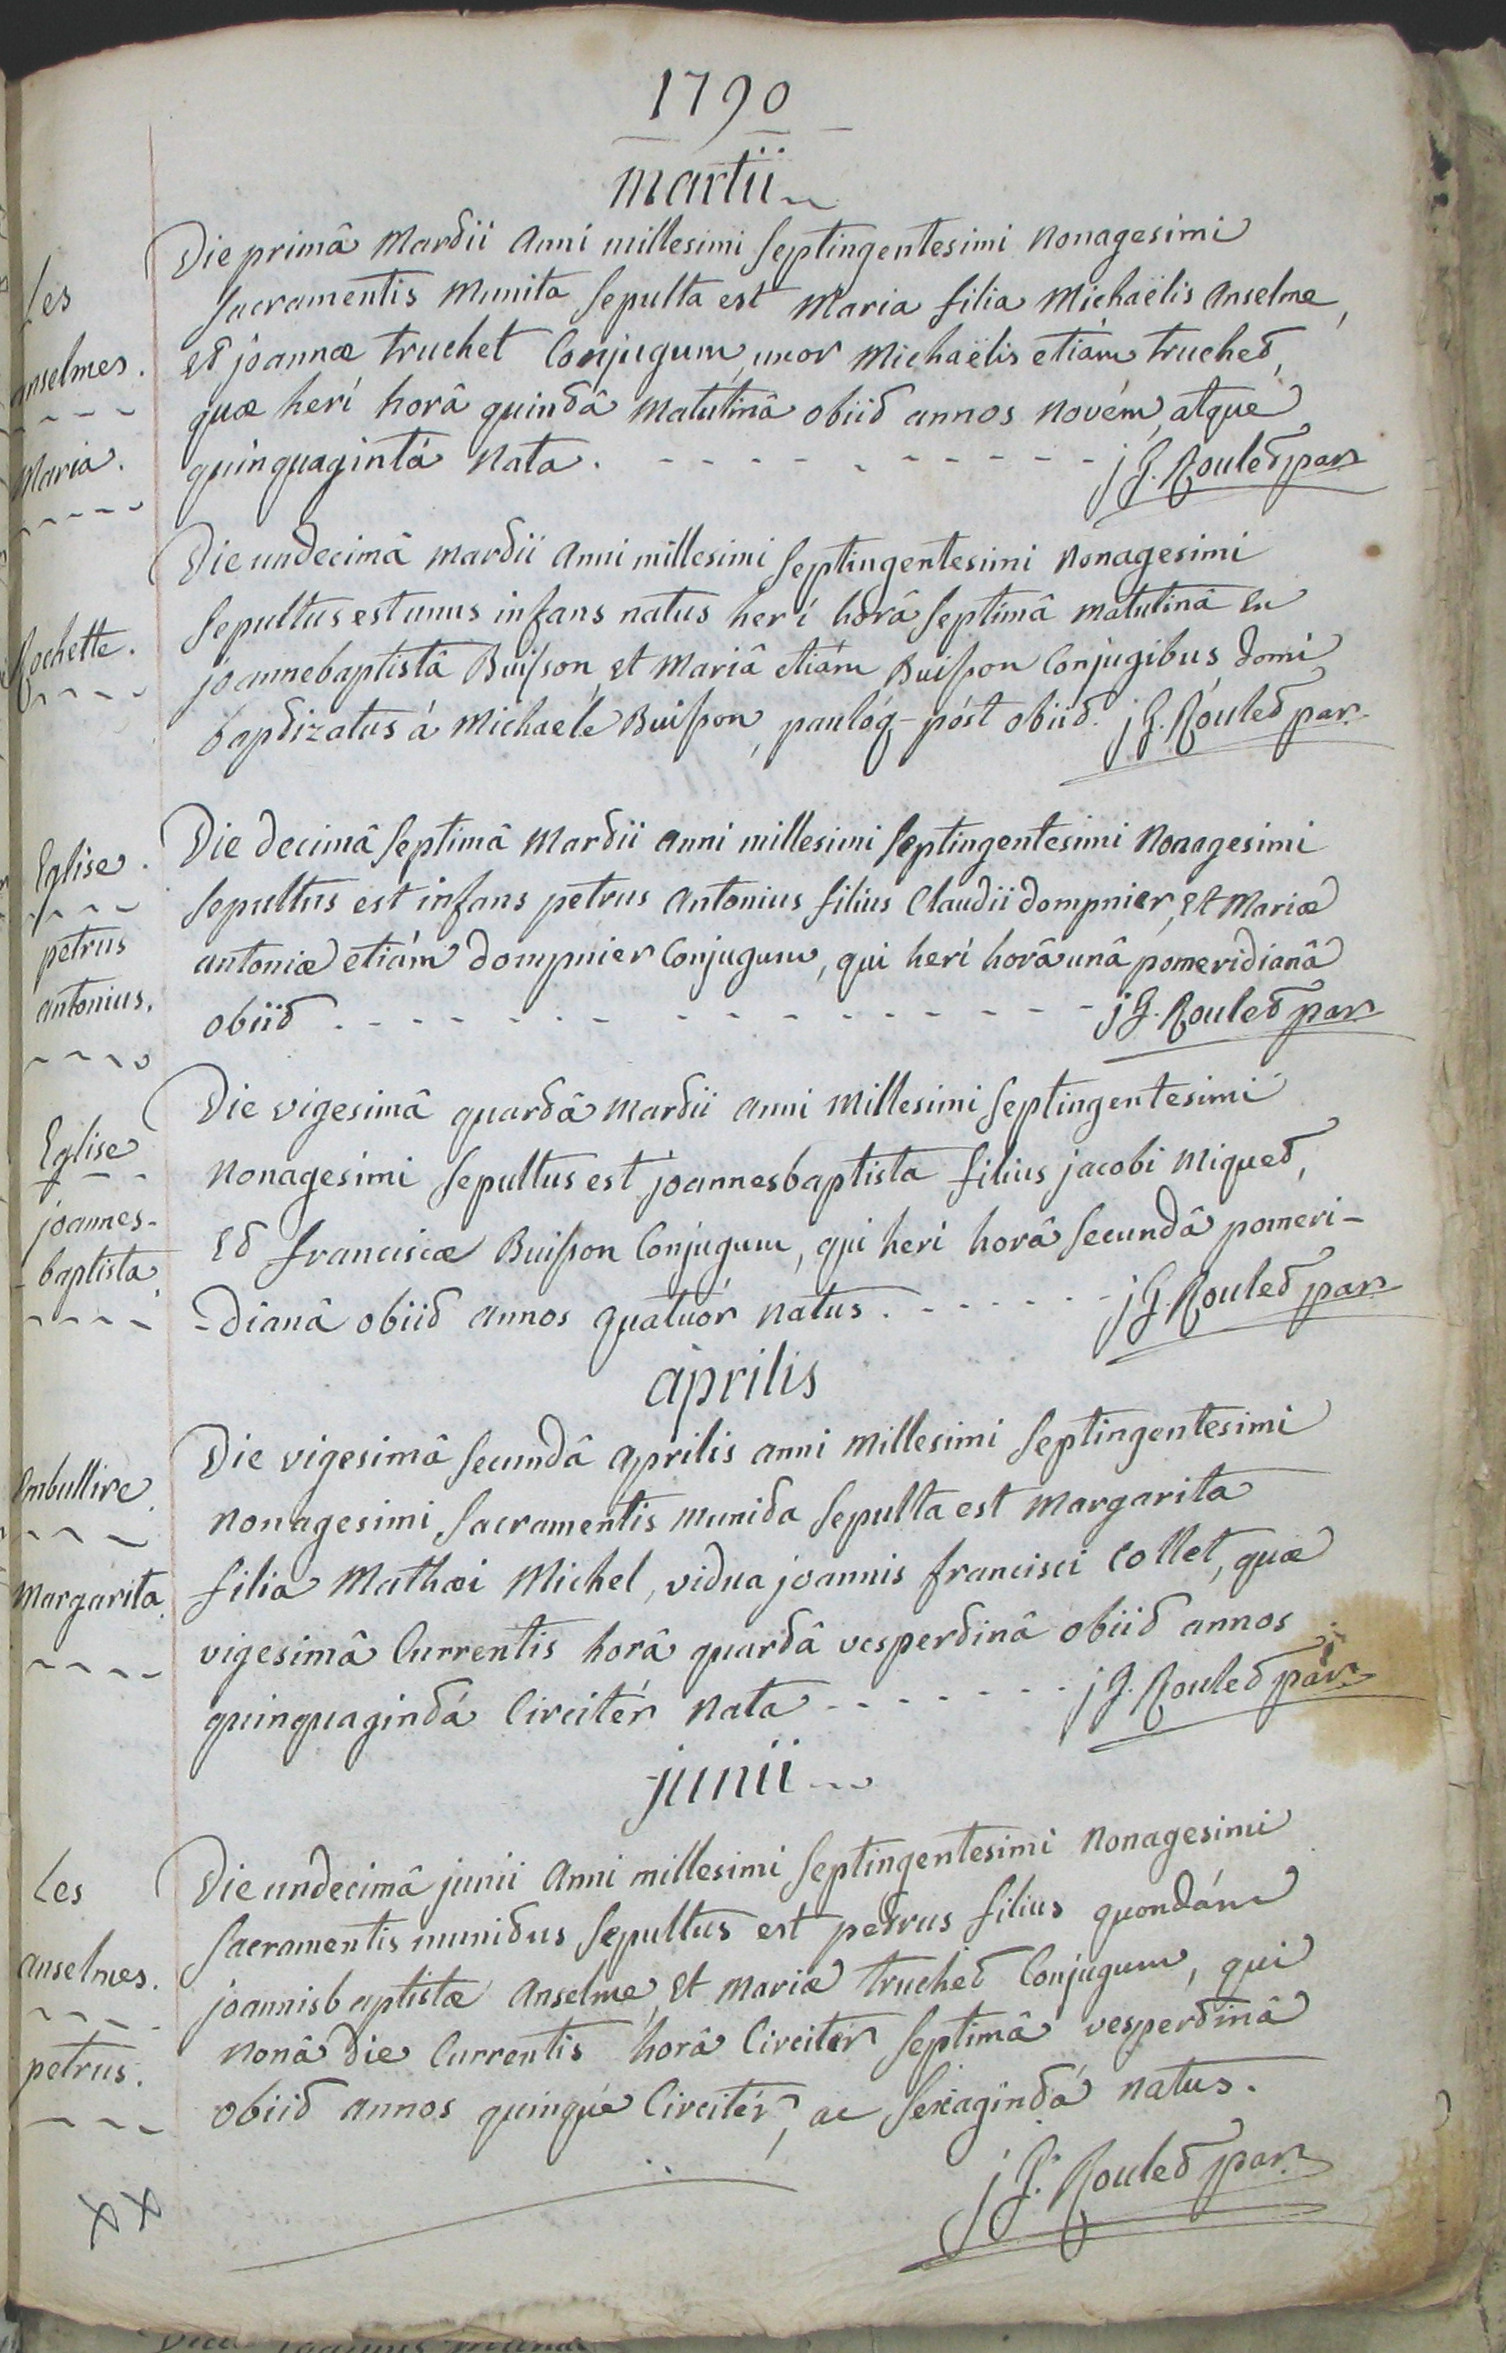 1790
martii
Les
anselmes.
Maria.
Die primâ Martii anni millesimi septingentesimi nonagesimi
sacramentis munita sepulta est Maria filia Michaëlis anselme,
et joannæ truchet Conjugum, uxor Michaëlis etiám truchet,
quæ herí horâ quintâ matutinâ obiit annos novém, atque
quinquagintá nata. j G. Roulet par
Rochette.
Die undecimâ martii anni millesimi septingentesimi nonagesimi
sepultus est unus infans natus herí horâ septimâ matutinâ Ex
joannebaptistâ Buisson, et Mariâ etiám Buisson Conjugibus, domi
baptizatus á Michaële Buisson, paulóq- póst obiit. j G. Roulet par
Eglise.
petrus
antonius.
Die decimâ septimâ martii anni millesimi septingentesimi nonagesimi
sepultus est infans petrus antonius filius Claudii dompnier, et Mariæ
antoniæ etiám dompnier Conjugum, qui herí horâ unâ pomeridianâ
obiit. j G. Roulet par
Eglise
joannes-
-baptista.
Die vigesimâ quartâ martii anni millesimi septingentesimi
nonagesimi sepultus est joannesbaptista filius jacobi miquet,
Et franciscæ Buisson Conjugum, qui heri horâ secundâ pomeri-
-dianâ obiit annos quatuór natus. j G. Roulet par
aprilis
Embullire.
Margarita.
Die vigesimâ secundâ aprilis anni millesimi septingentesimi
nonagesimi sacramentis munita sepulta est Margarita
filia Mathæi Michel, vidua joannis francisci Collet, quæ
vigesimâ Currentis horâ quartâ vespertinâ obiit annos
quinquagintá Circitér nata j G. Roulet par
junii
Les
anselmes.
petrus.
Die undecimâ junii anni millesimi septingentesimi nonagesimi
sacramentis munitus sepultus est petrus filius quondám
joannisbaptistæ anselme, et Mariæ truchet Conjugum, qui
nonâ die Currentis horâ Circitér septimâ vespertinâ
obiit annos quinqué Circitér, ac sexagintá natus.
j G. Roulet par
XX